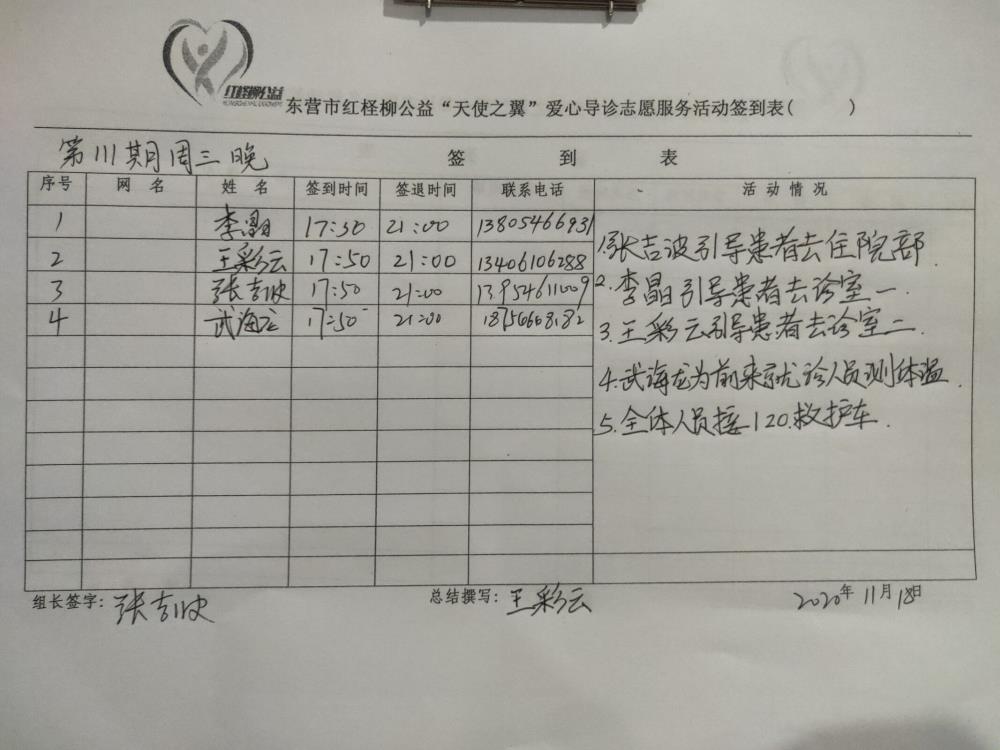 红柽柳公益
东营市红柽柳公益“天使之翼”爱心导诊志愿服务活动签到表( )
第111期周三晚 签 到 表
序号 网 名 姓 名 签到时间 签退时间 联系电话 活 动 情 况
1 李晶 17:50 21:00 13805466931
2 王彩云 17:50 21:00 13406106288
3 张吉波 17:50 21:00 13954611009
4 武海龙 17:50 21:00 18756668182
1.张吉波引导患者去住院部
2.李晶引导患者去诊室一.
3.王彩云引导患者去诊室二.
4.武海龙为前来就诊人员测体温.
5.全体人员接120.救护车.
组长签字:张吉波 总结撰写:王彩云 2020年11月18日